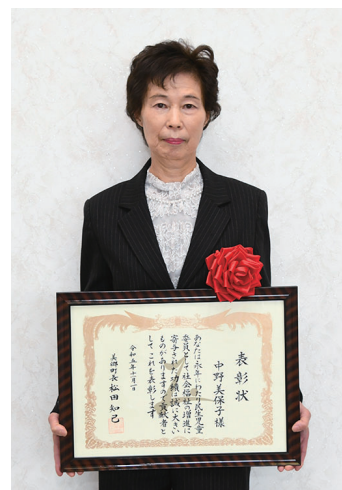 表彰状
中野美保子様
あなたは永年にわたり民生児童
委員として社会福祉の増進に
寄与された功績は誠に大きい
ものがありますので貢献者と
してこれを表彰します
令和五年十一月一日
美郷町長 松田知己